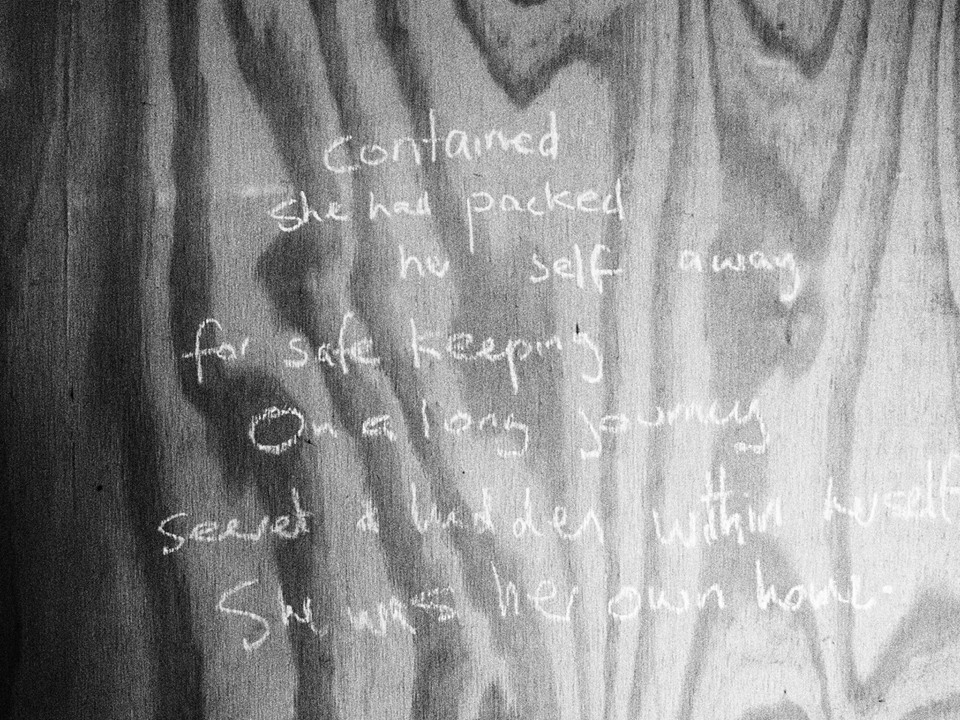 Contained
She had packed
her self away
for safe keeping
On a long journey
secret & hidden within herself
She was her own home.